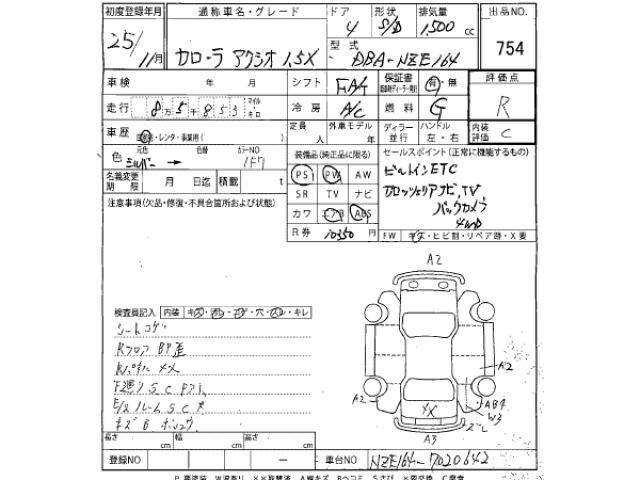 初度登録年月 通称車名・グレード ドア 形状 排気量 出品NO.
25/11月 カローラ アクシオ 1.5X 4 S/D 1500 cc 754
型式 DBA-NZE164
車検 年 月 シフト FAT 保証書 有・無 評価点
走行 8万5千853 マイル キロ 冷房 A/C 燃料 G R
車歴 自家用・レンタ・事業用( ) 定員 人 外車モデル 年 ディーラー 並行 ハンドル 左・右 内装評価 C
色 元色 シルバー → 色替 カラーNO 1F7
装備品(純正品に限る) セールスポイント(正常に機能するもの)
名義変更期限 月 日迄 積載 t PS PW AW ビルトインETC
SR TV ナビ カロッツェリアナビ,TV
注意事項(欠品・修復・不具合箇所および状態) カワ エアB ABS バックカメラ
4WD
R券 10350 円 FW キズ・ヒビ割・リペア跡・X要
A2
検査員記入 内装 キズ・汚れ・コゲ・穴・スレ・キレ
シートコゲ
Rフロア BP歪
Rパネル メメ
A2
A2 AB4
W3
XX
キズB
A3
長さ cm 幅 cm 高さ cm
登録NO ー 車台NO NZE164-7020642